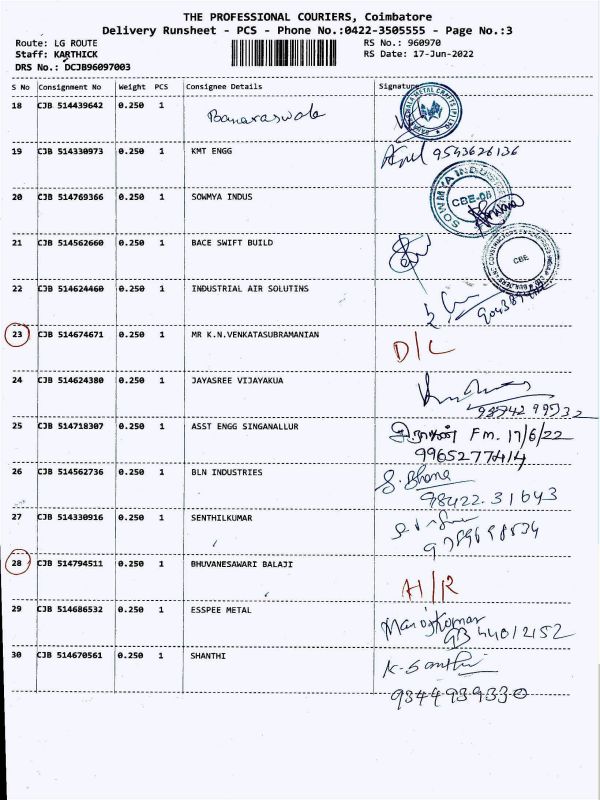 THE PROFESSIONAL COURIERS, Coimbatore
Delivery Runsheet - PCS - Phone No.:0422-3505555 - Page No.:3
Route: LG ROUTE
RS No.: 960970
Staff: KARTHICK
RS Date: 17-Jun-2022
DRS No.: DCJB96097003
S No Consignment No Weight PCS Consignee Details Signature
18 CJB 514439642 0.250 1
19 CJB 514330973 0.250 1 KMT ENGG 9543626136
20 CJB 514769366 0.250 1 SOWMYA INDUS SOWMYA CBE-08
21 CJB 514562660 0.250 1 BACE SWIFT BUILD CBE
22 CJB 514624460 0.250 1 INDUSTRIAL AIR SOLUTINS
23 CJB 514674671 0.250 1 MR K.N.VENKATASUBRAMANIAN D/L
24 CJB 514624380 0.250 1 JAYASREE VIJAYAKUA
25 CJB 514718307 0.250 1 ASST ENGG SINGANALLUR Fm. 17/6/22
9965277414
26 CJB 514562736 0.250 1 BLN INDUSTRIES
98422 31643
27 CJB 514330916 0.250 1 SENTHILKUMAR
28 CJB 514794511 0.250 1 BHUVANESAWARI BALAJI H/R
29 CJB 514686532 0.250 1 ESSPEE METAL
30 CJB 514670561 0.250 1 SHANTHI K. Santhi
9344939330